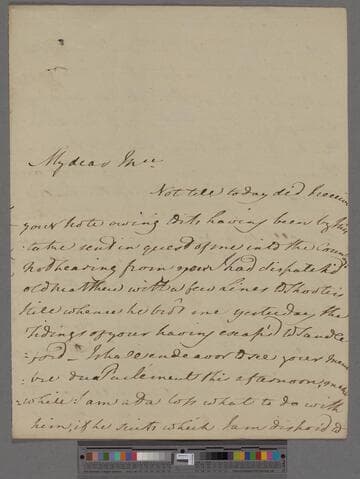 My dear Sir
Not till today did I receive
your note owing to its having been by
to be sent in quest of me into the Country
Not hearing from you I had dispatch'd
old Matthew with a few lines to
hill whence he bro't me yesterday the
Tidings of your having escap'd to
ford — I shall endeavor to see your
this afternoon;
while I am at a loss what to do with
him; if he suits which I am dispos'd to